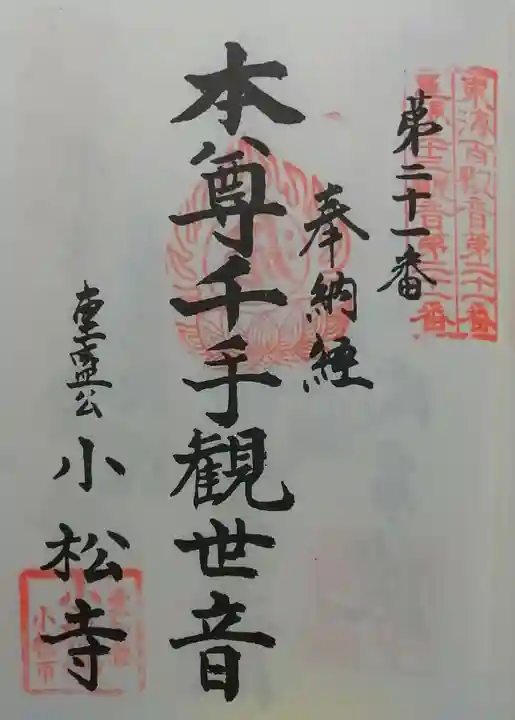 東海百観音第二十一番
第二十一番
奉納経
本尊千手観世音
重盛公
小松寺